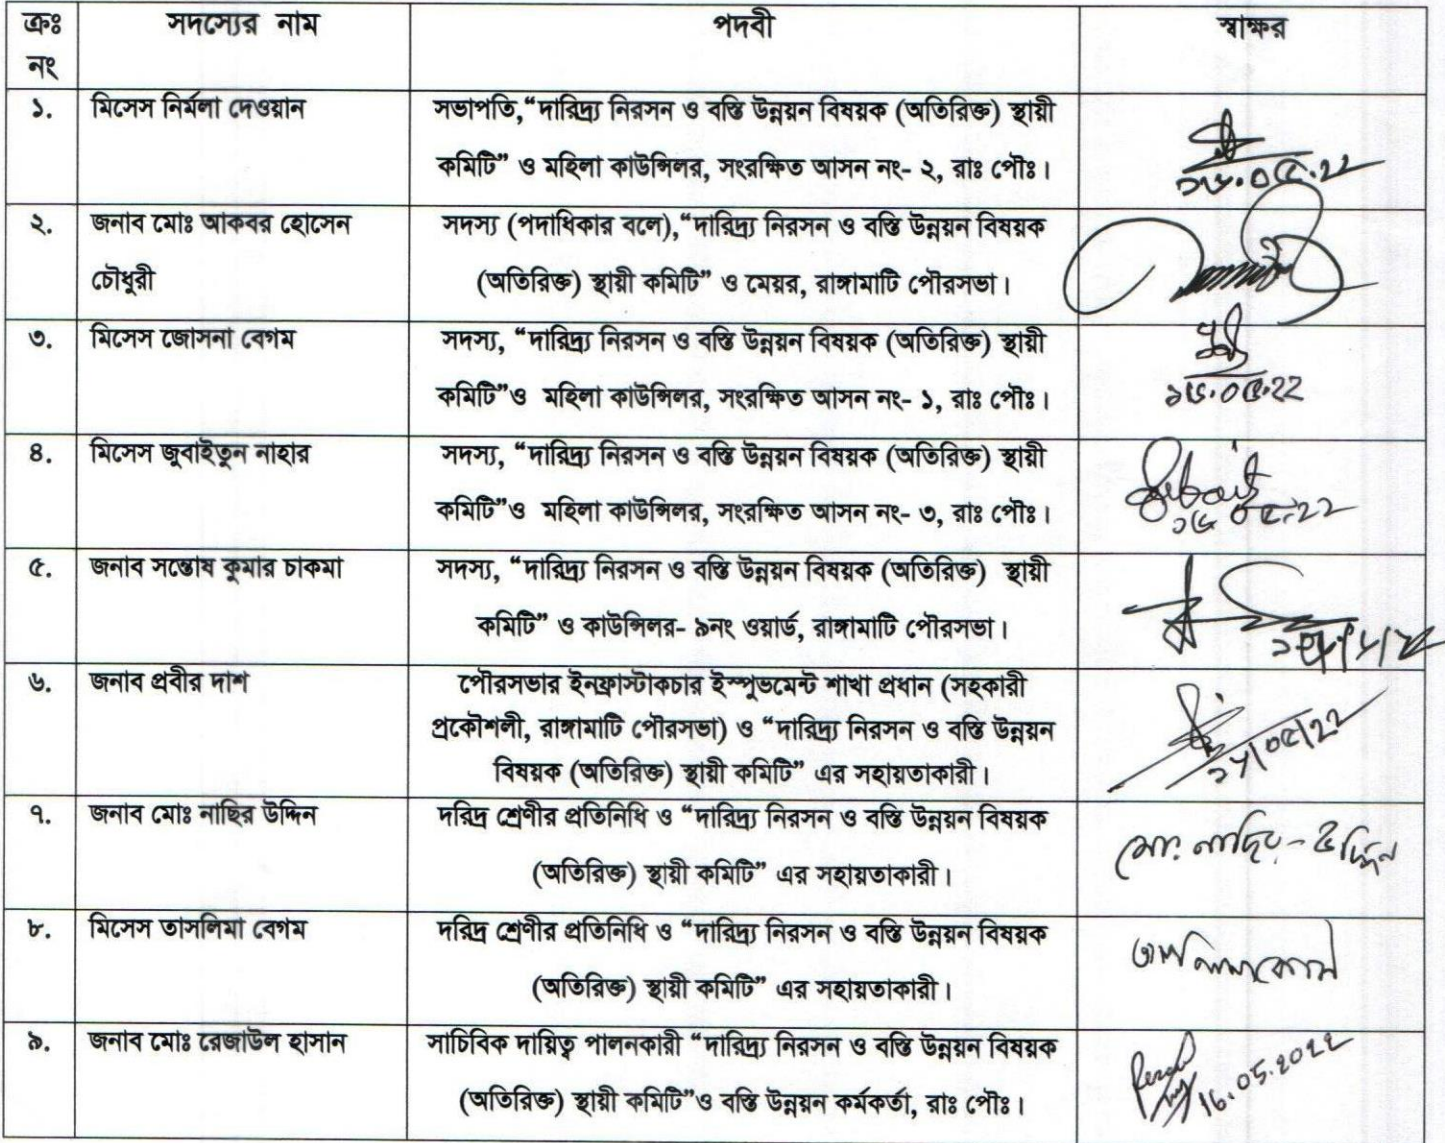 ক্রঃ নং সদস্যের নাম পদবী স্বাক্ষর
১. মিসেস নির্মলা দেওয়ান সভাপতি,“দারিদ্র্য নিরসন ও বস্তি উন্নয়ন বিষয়ক (অতিরিক্ত) স্থায়ী
কমিটি” ও মহিলা কাউন্সিলর, সংরক্ষিত আসন নং- ২, রাঃ পৌঃ।
১৬.০৫.২২
২. জনাব মোঃ আকবর হোসেন
চৌধুরী
সদস্য (পদাধিকার বলে),“দারিদ্র্য নিরসন ও বস্তি উন্নয়ন বিষয়ক
(অতিরিক্ত) স্থায়ী কমিটি” ও মেয়র, রাঙ্গামাটি পৌরসভা।
৩. মিসেস জোসনা বেগম সদস্য, “দারিদ্র্য নিরসন ও বস্তি উন্নয়ন বিষয়ক (অতিরিক্ত) স্থায়ী
কমিটি”ও মহিলা কাউন্সিলর, সংরক্ষিত আসন নং- ১, রাঃ পৌঃ।
১৬.০৫.২২
৪. মিসেস জুবাইতুন নাহার সদস্য, “দারিদ্র্য নিরসন ও বস্তি উন্নয়ন বিষয়ক (অতিরিক্ত) স্থায়ী
কমিটি”ও মহিলা কাউন্সিলর, সংরক্ষিত আসন নং- ৩, রাঃ পৌঃ।
৫. জনাব সন্তোষ কুমার চাকমা সদস্য, “দারিদ্র্য নিরসন ও বস্তি উন্নয়ন বিষয়ক (অতিরিক্ত) স্থায়ী
কমিটি” ও কাউন্সিলর- ৯নং ওয়ার্ড, রাঙ্গামাটি পৌরসভা।
৬. জনাব প্রবীর দাশ পৌরসভার ইনফ্রাস্টাকচার ইম্প্রুভমেন্ট শাখা প্রধান (সহকারী
প্রকৌশলী, রাঙ্গামাটি পৌরসভা) ও “দারিদ্র্য নিরসন ও বস্তি উন্নয়ন
বিষয়ক (অতিরিক্ত) স্থায়ী কমিটি” এর সহায়তাকারী।
৭. জনাব মোঃ নাছির উদ্দিন দরিদ্র শ্রেণীর প্রতিনিধি ও “দারিদ্র্য নিরসন ও বস্তি উন্নয়ন বিষয়ক
(অতিরিক্ত) স্থায়ী কমিটি” এর সহায়তাকারী।
মো: নাছির-উদ্দিন
৮. মিসেস তাসলিমা বেগম দরিদ্র শ্রেণীর প্রতিনিধি ও “দারিদ্র্য নিরসন ও বস্তি উন্নয়ন বিষয়ক
(অতিরিক্ত) স্থায়ী কমিটি” এর সহায়তাকারী।
৯. জনাব মোঃ রেজাউল হাসান সাচিবিক দায়িত্ব পালনকারী “দারিদ্র্য নিরসন ও বস্তি উন্নয়ন বিষয়ক
(অতিরিক্ত) স্থায়ী কমিটি”ও বস্তি উন্নয়ন কর্মকর্তা, রাঃ পৌঃ।
16.05.2022